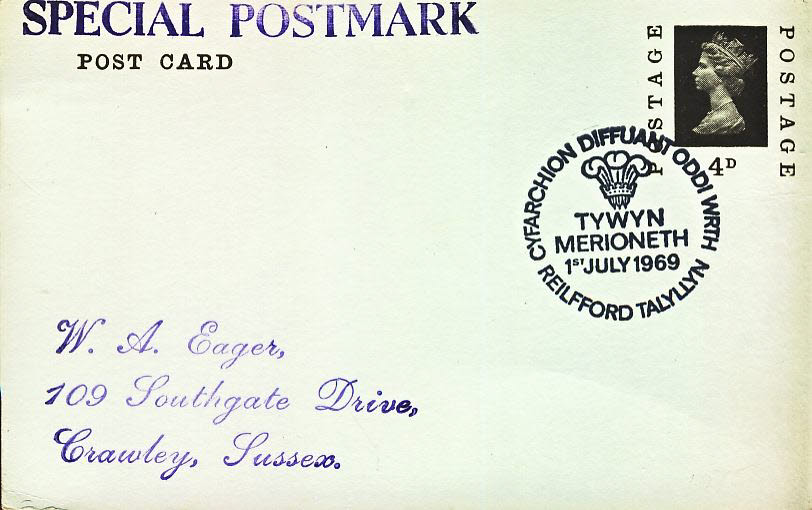 SPECIAL POSTMARK
POST CARD
POSTAGE
POSTAGE
4D
CYFARCHION DIFFUANT ODDI WRTH
TYWYN
MERIONETH
1ST JULY 1969
REILFFORD TALYLLYN
W. A. Eager,
109 Southgate Drive,
Crawley, Sussex.